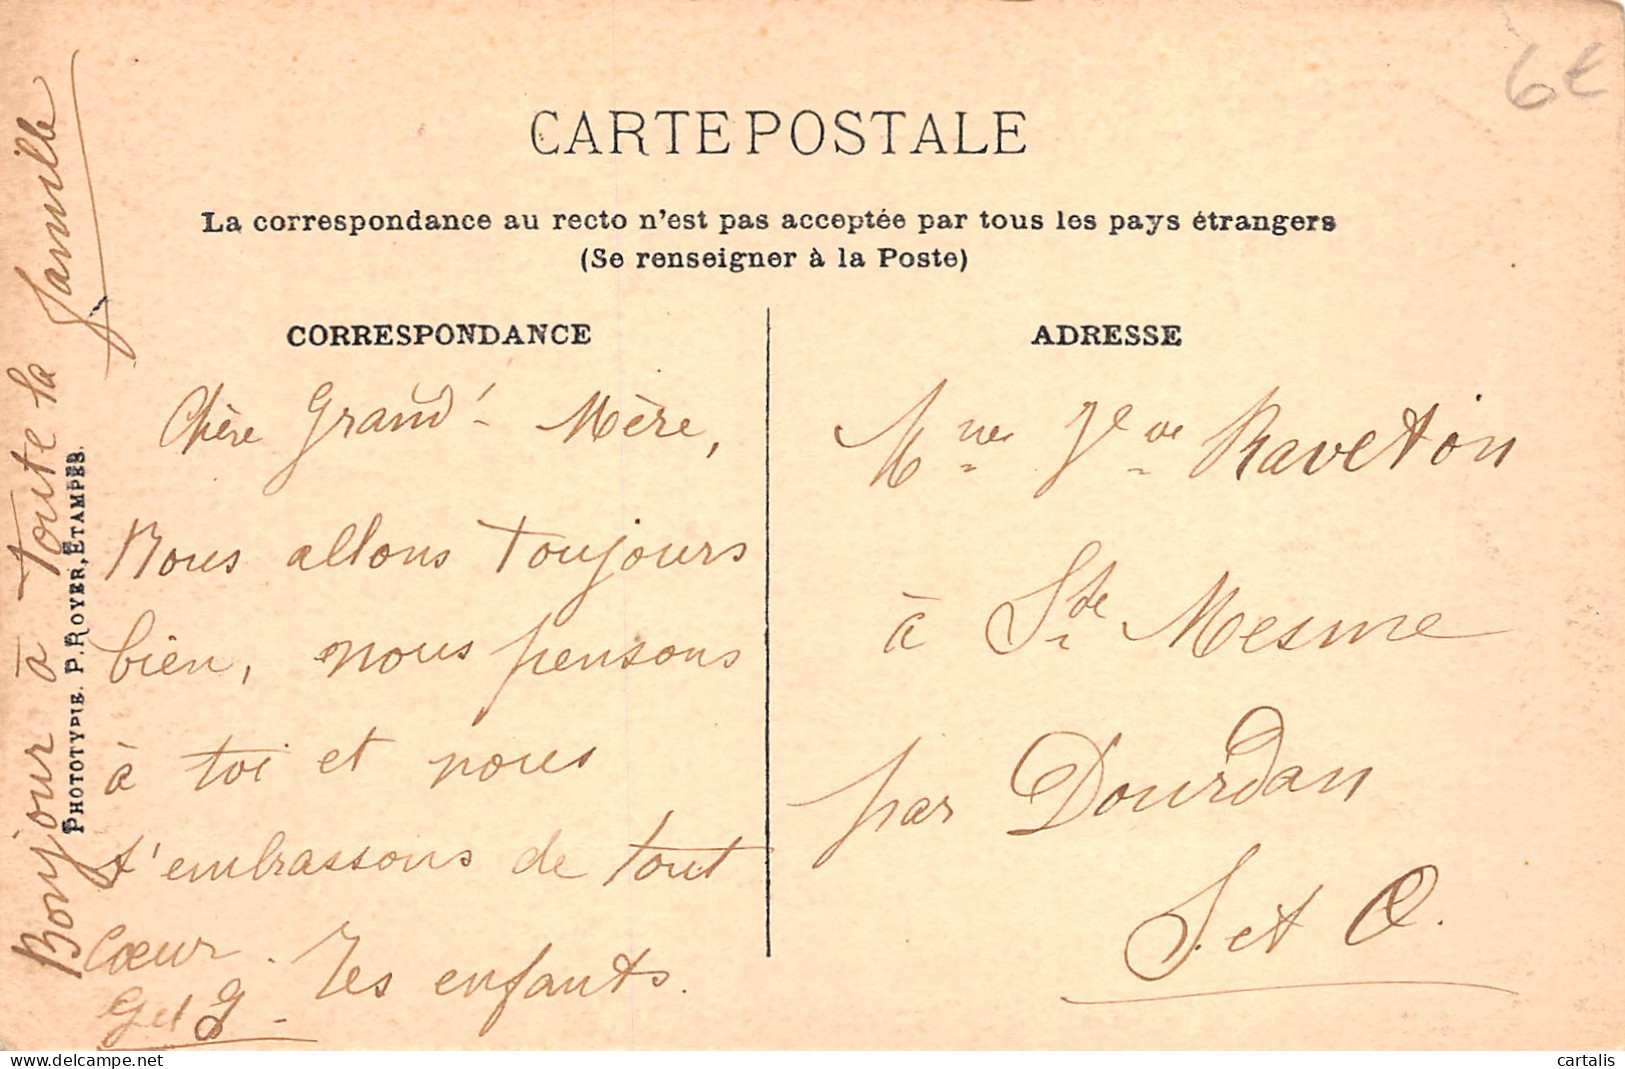 6€
CARTE POSTALE
La correspondance au recto n'est pas acceptée par tous les pays étrangers
(Se renseigner à la Poste)
CORRESPONDANCE
Chère Grand'-Mère,
Nous allons toujours
bien, nous pensons
à toi et nous
t'embrassons de tout
cœur. Tes enfants.
G et G
Bonjour à toute la
famille
PHOTOTYPIE. P. ROYER, ETAMPES.
ADRESSE
Mme Vve Raveton
à Ste Mesme
par Dourdan
S. et O.
cartalis